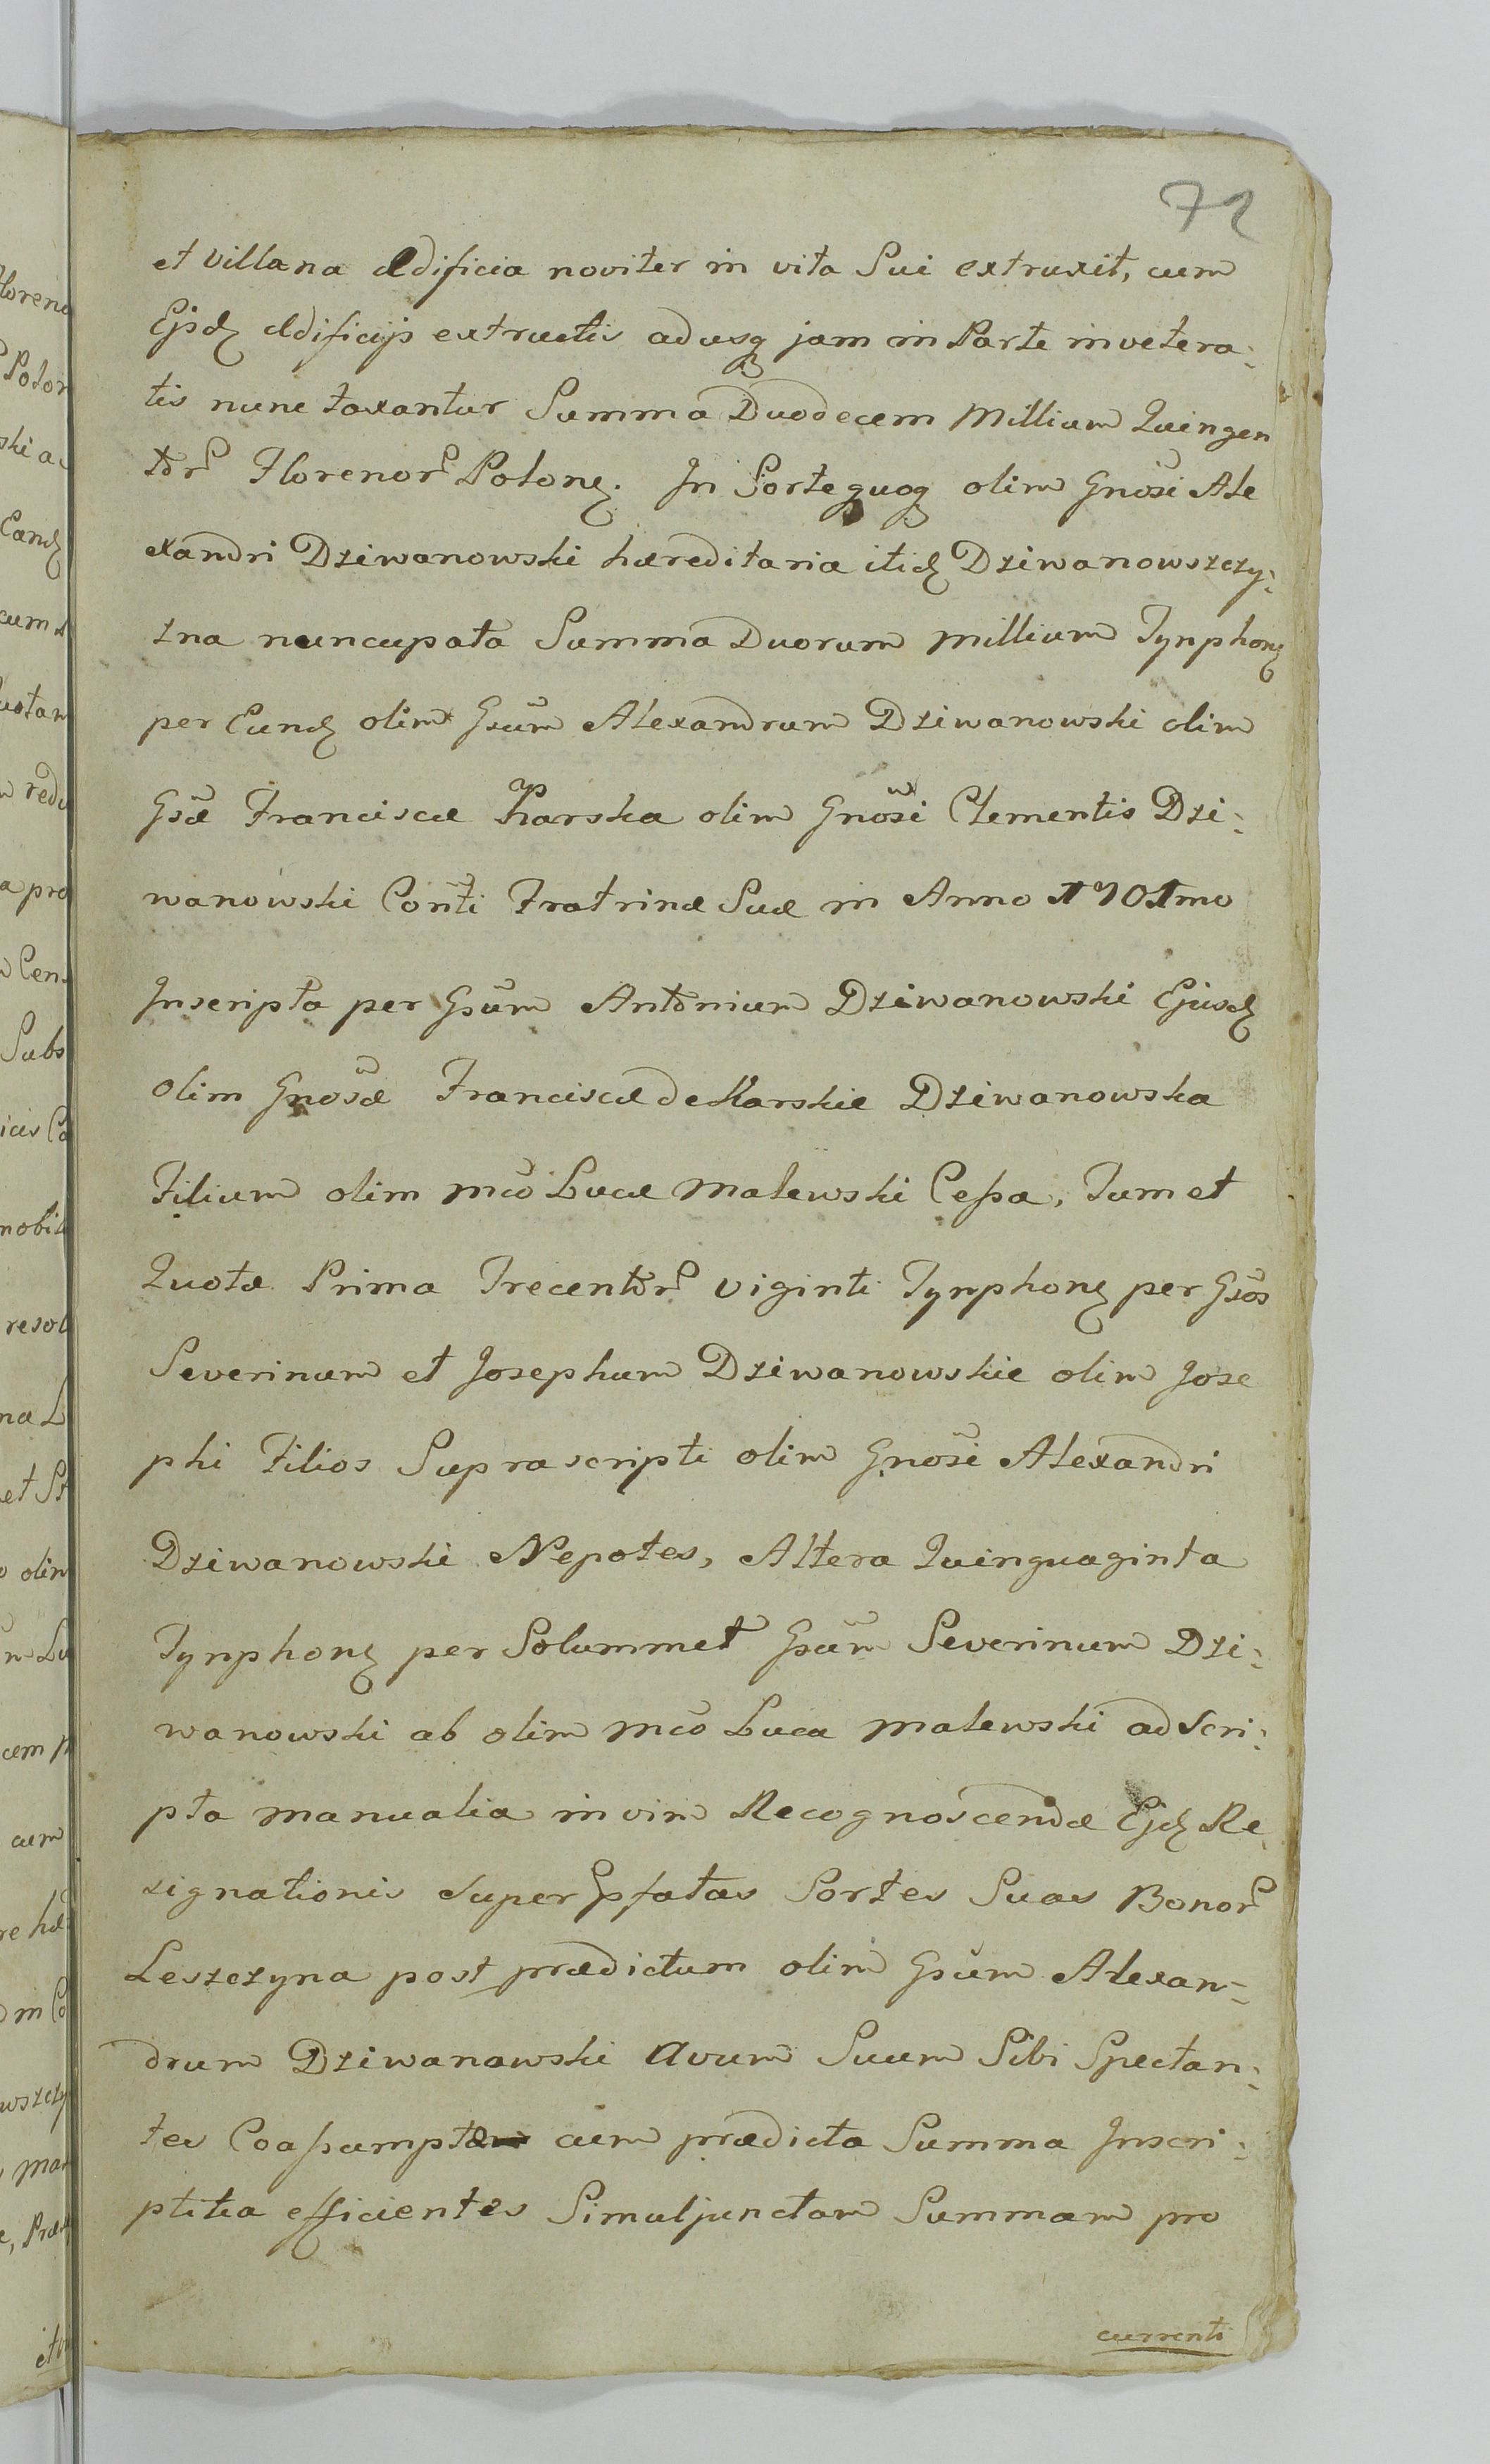 72
et villana ædificia noviter in vita Sui extruxit, cum
Ejsdꝫ ædificijs extructis adusqꝫ jam in Parte invetera:
tis nunc taxantur Summa Duodecem Millium Quingen
tor̃ Florenor̃ Polonꝫ. In Sorte quoqꝫ olim Gnosi Ale
xandri Dziwanowski hæreditaria itidꝫ Dziwanowszczy:
zna nuncupata Summa Duorum millium Tynphonꝫ
per Eundꝫ olim Gsũm Alexandrum Dziwanowski olim
Gsæ̃ Franciscæ Karska olim Gnosi Clementis Dzi:
wanowski Conti Fratrinæ Suæ in Anno 1701mo
Inscripta per Gsũm Antonium Dziwanowski Ejusdꝫ
olim Gnosæ̃ Franciscæ de Karskie Dziwanowska
Filium olim mco Lucæ Malewski Cessa, Tum et
Quotæ Prima Trecentor̃ viginti Tynphonꝫ per Gsõs
Severinum et Josephum Dziwanowskie olim Jose
phi Filios Suprascripti olim Gnosi Alexandri
Dziwanowski Nepotes, Altera Quinquaginta
Tynphonꝫ per Solummet Gsũm Severinum Dzi:
wanowski ab olim mco Luca Malewski ad Scri:
pta manualia in vim Recognoscendæ Ejdꝫ Re
signationis super pfatas Sortes Suas Bonor̃
Leszczyna post prædictum olim Gsũm Alexan:
drum Dziwanawski Avum Suum Sibi Spectan:
tes Coassumptæ cum prædicta Summa Inscri:
ptitia efficientes Simuljunctam Summam pro
currenti